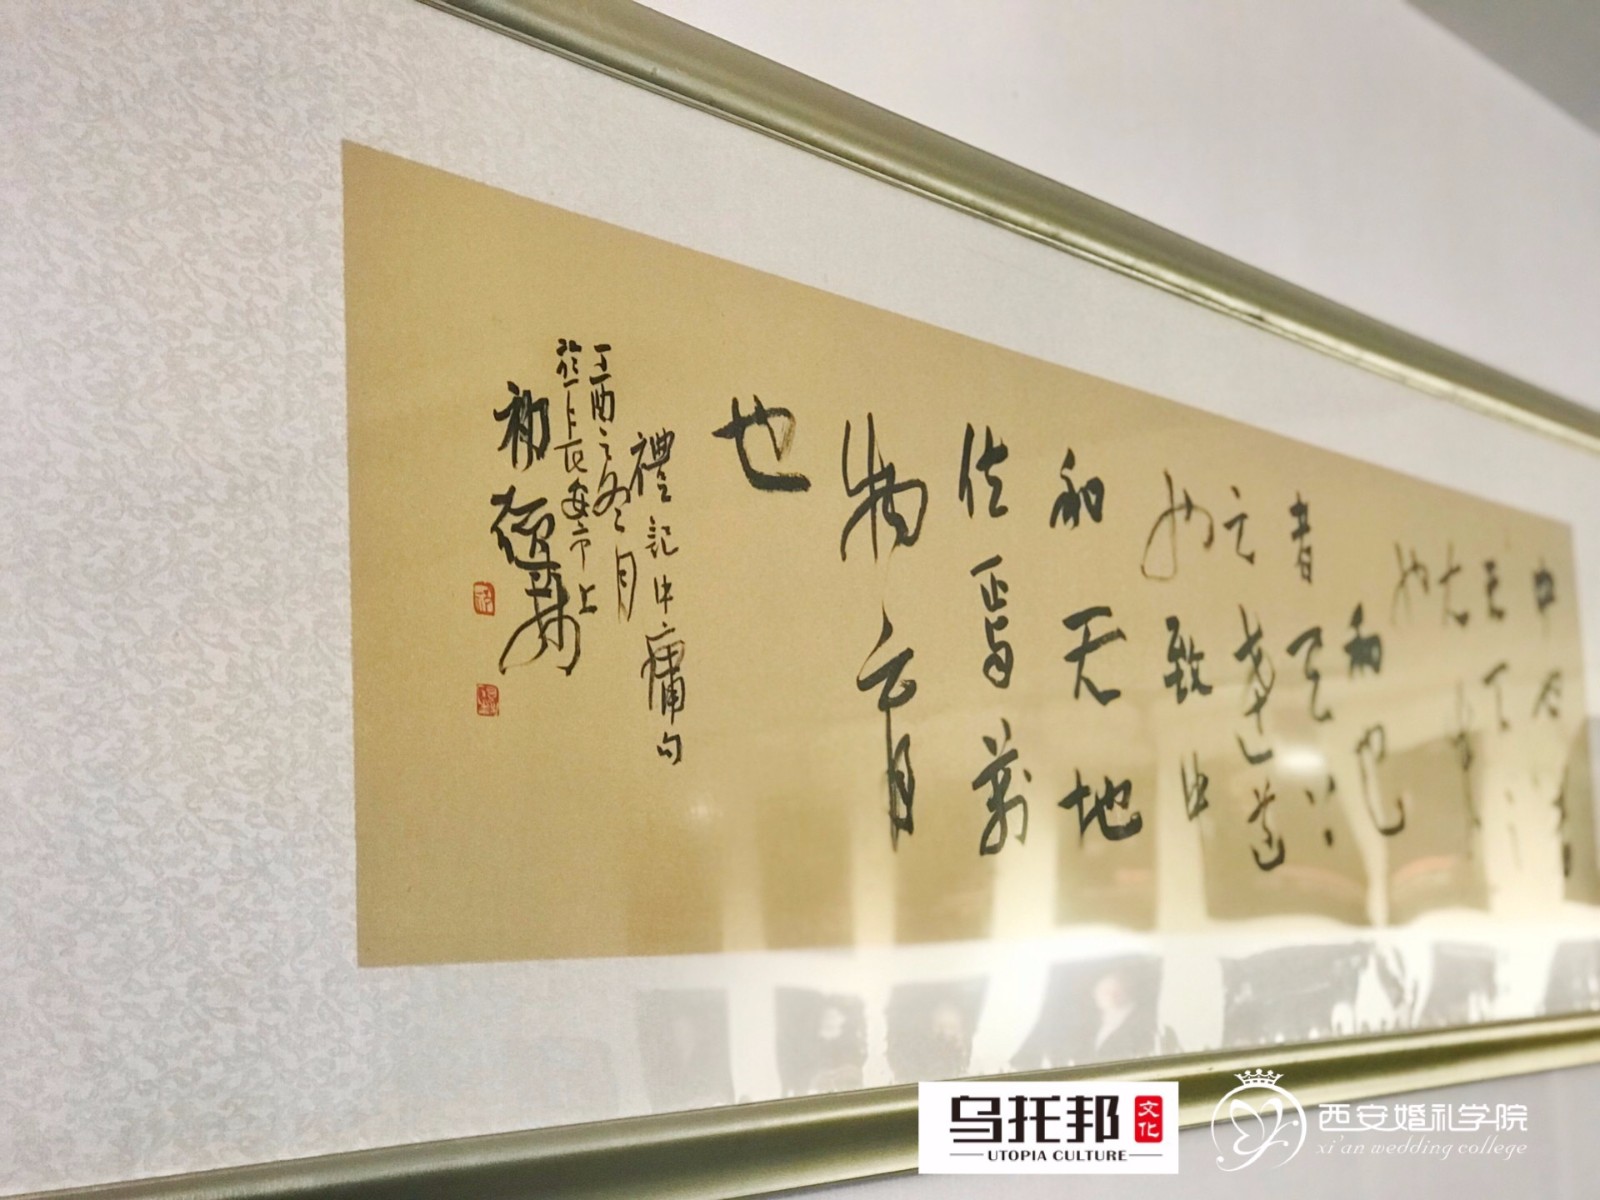 中也者
天下之
大本
也
和也
者天下
之達道
也致中
和天地
位焉萬
物育
也
禮記中庸句
丁酉之冬月
長安市上
乌托邦
文化
UTOPIA CULTURE
西安婚礼学院
xi'an wedding college